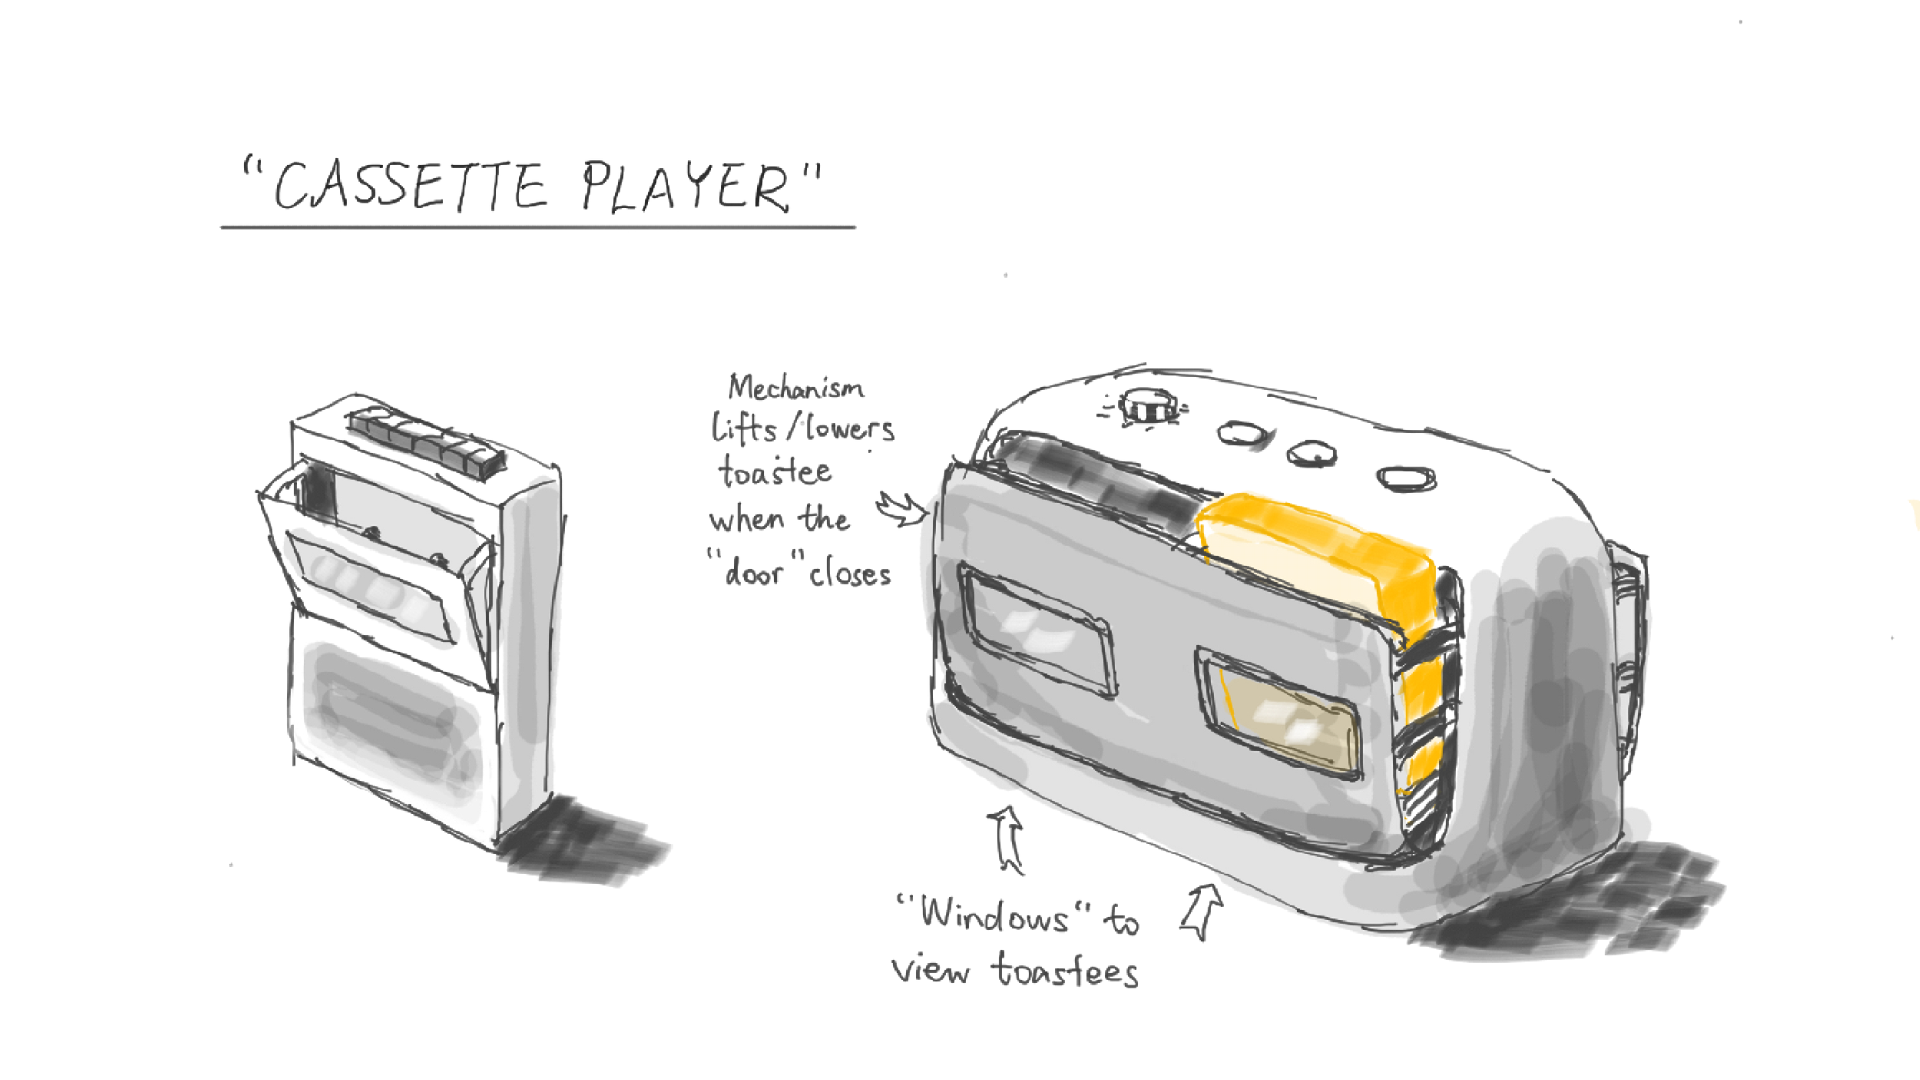 "CASSETTE PLAYER"
Mechanism
lifts/lowers
toastee
when the
"door" closes
"Windows" to
view toastees